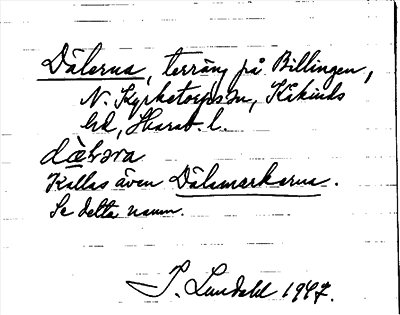 Dälerna, terräng på Billingen,
N. Kyrketorps sn, Kåkinds
hd, Skarab. l.
Kallas även Dälamarkerna.
Se detta namn.
I. Lundahl 1947.